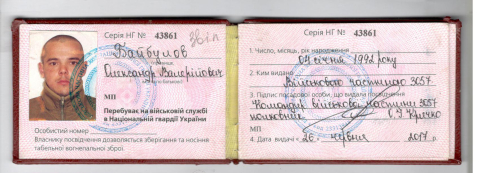 Серія НГ № 43861
Звіл
Байбулов
Олександр Валерійович
МП
Перебуває на військовій службі
в Національній гвардії України
Особистий номер
Власнику посвідчення дозволяється зберігання та носіння
табельної вогнепальної зброї.
Серія НГ № 43861
1. Число, місяць, рік народження
січня 1992 року
2. Ким видано
Військовою частиною 3057
3. Підпис посадової особи, що видала посвідчення
Командир військової частини 3057
полковник
МП
4. Дата видачі «26» червня 2017 р.